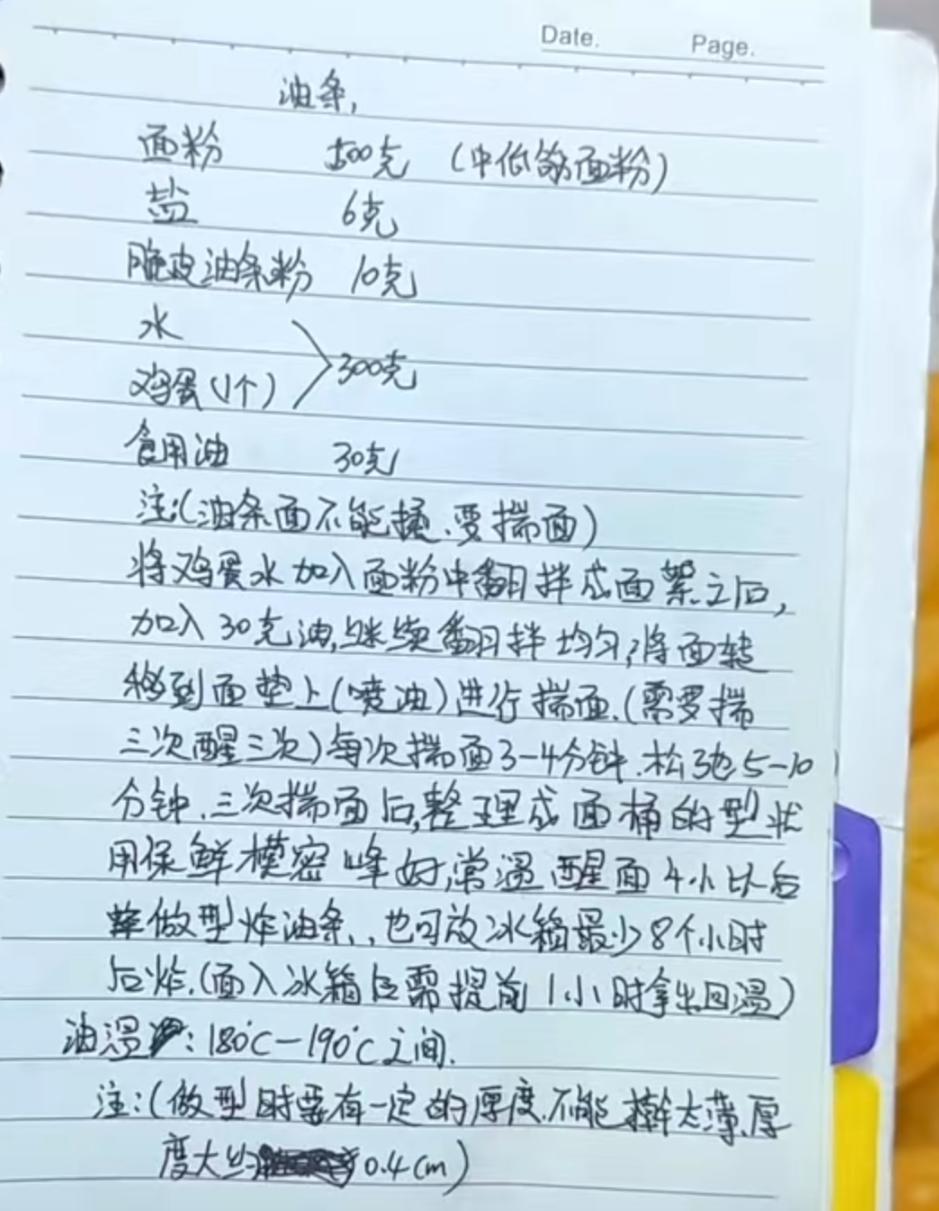 Date. Page.
油条,
面粉 500克 (中低筋面粉)
盐 6克
脆皮油条粉 10克
水
300克
鸡蛋(1个)
食用油 30克
注:(油条面不能揉.要揣面)
将鸡蛋水加入面粉中翻拌成面絮之后,
加入30克油,继续翻拌均匀;将面转
移到面垫上(喷油)进行揣面.(需要揣
三次醒三次)每次揣面3-4分钟.松弛5-10
分钟.三次揣面后,整理成面桶的型状
用保鲜模密峰好,常温醒面4小以后
做型炸油条.,也可放冰箱最少8个小时
后炸.(面入冰箱后需提前1小时拿出回温)
油温:180℃-190℃之间.
注:(做型时要有一定的厚度.不能擀太薄.厚
度大约0.4cm)